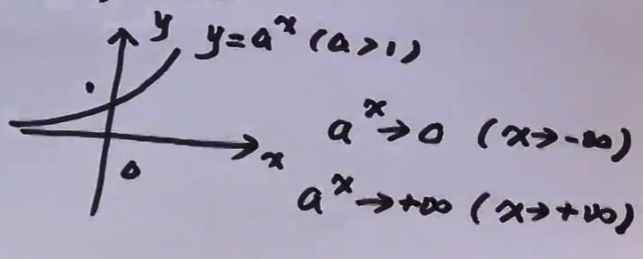 y
y=a^x (a>1)
x
0
a^x→0 (x→-∞)
a^x→+∞ (x→+∞)